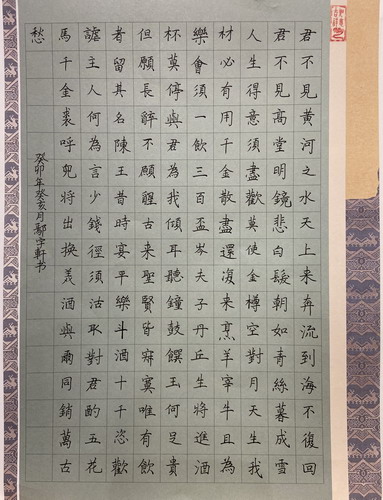 君不見黃河之水天上来奔流到海不復回
君不見高堂明鏡悲白髮朝如青絲暮成雪
人生得意須盡歡莫使金樽空對月天生我
材必有用千金散盡還復来烹羊宰牛且為
樂會須一飲三百盃岑夫子丹丘生將進酒
杯莫停與君為我傾耳聽鐘鼓饌玉何足貴
但願長醉不願醒古来聖賢皆寂寞唯有飲
者留其名陳王昔時宴平樂斗酒十千恣歡
謔主人何為言少錢徑須沽取對君酌五花
馬千金裘呼兒將出換美酒與爾同銷萬古
愁
癸卯年癸亥月鄢宇軒书